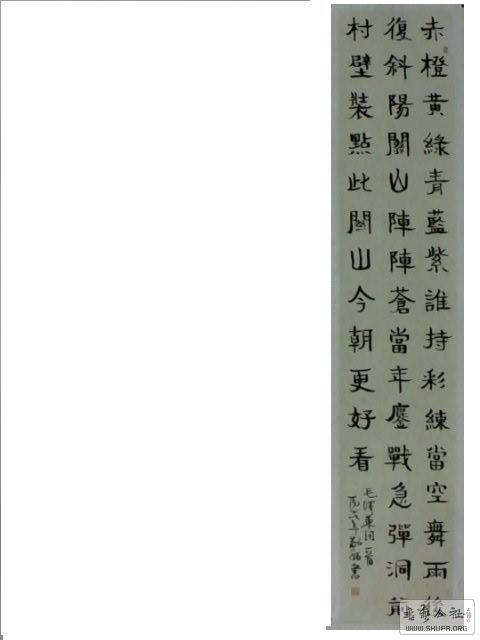 赤橙黃綠青藍紫誰持彩練當空舞雨後
復斜陽關山陣陣蒼當年鏖戰急彈洞前
村壁裝點此關山今朝更好看
毛澤東詞一首
書
WWW.SHUFA.ORG